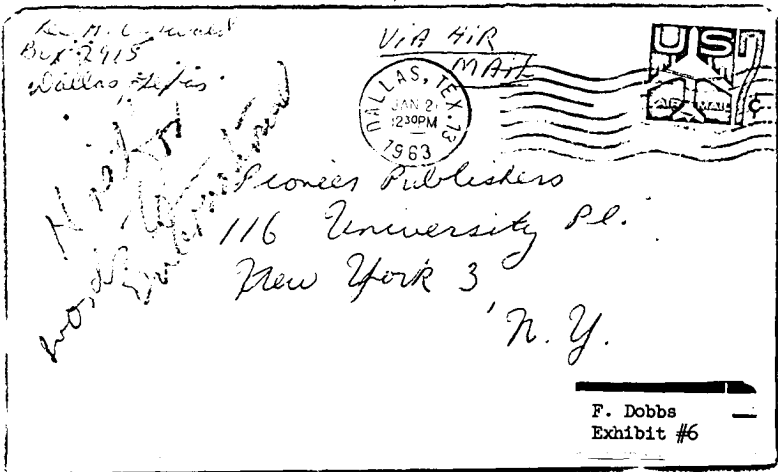 Box 2915
Dallas, Texas
VIA AIR
MAIL
DALLAS, TEX. 13
JAN 21
1230PM
1963
US
AIR MAIL
7¢
Pioneer Publishers
116 University Pl.
New York 3
N. Y.
F. Dobbs
Exhibit #6